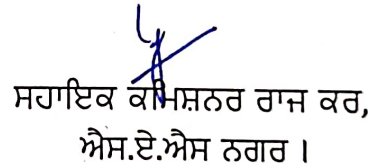 ਸਹਾਇਕ ਕਮਿਸ਼ਨਰ ਰਾਜ ਕਰ,
ਐਸ.ਏ.ਐਸ ਨਗਰ।